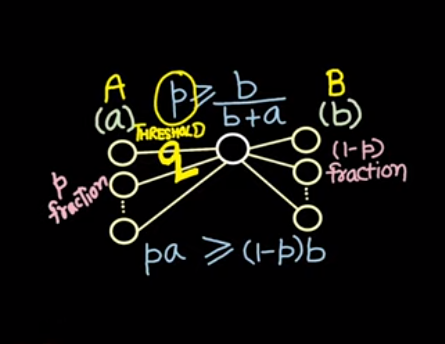 A
p ≥ b / b+a
B
(a)
(b)
THRESHOLD
q
p fraction
(1-p) fraction
pa ≥ (1-p)b